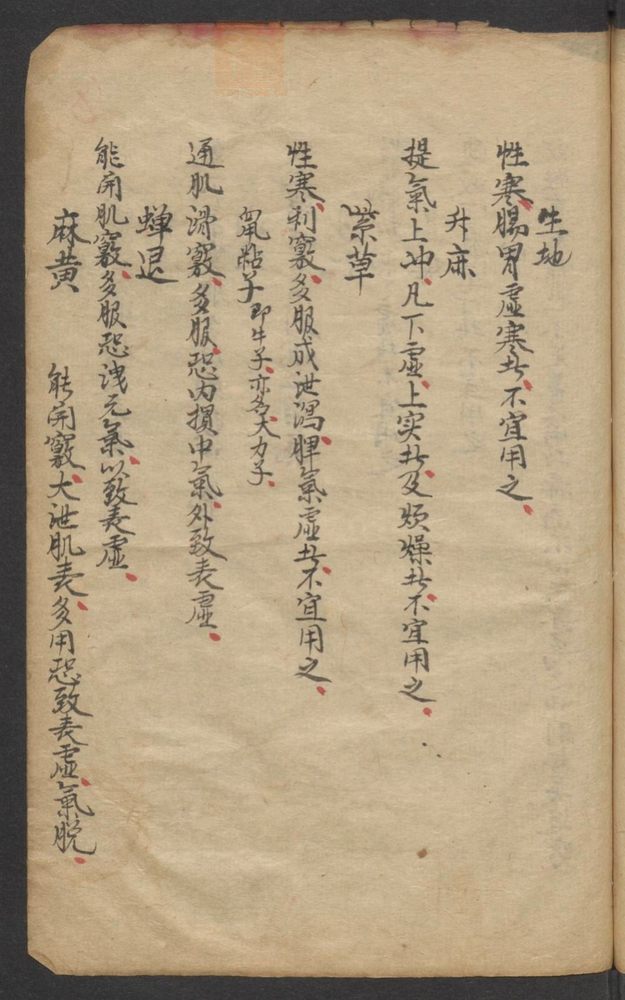 生地
性寒、腸胃虛寒者、不宜用之、
升麻
提氣上冲、凡下虛、上实者、及烦燥者、不宜用之、
紫草
性寒、利竅、多服成泄瀉、脾氣虛者、不宜用之、
鼠粘子 即牛子、亦名大力子、
通肌滑竅、多服、恐内損中氣、外致表虛、
蟬退
能開肌竅、多服恐洩元氣、以致表虛、
麻黄 能開竅、大泄肌表、多用恐致表虛、氣脱、